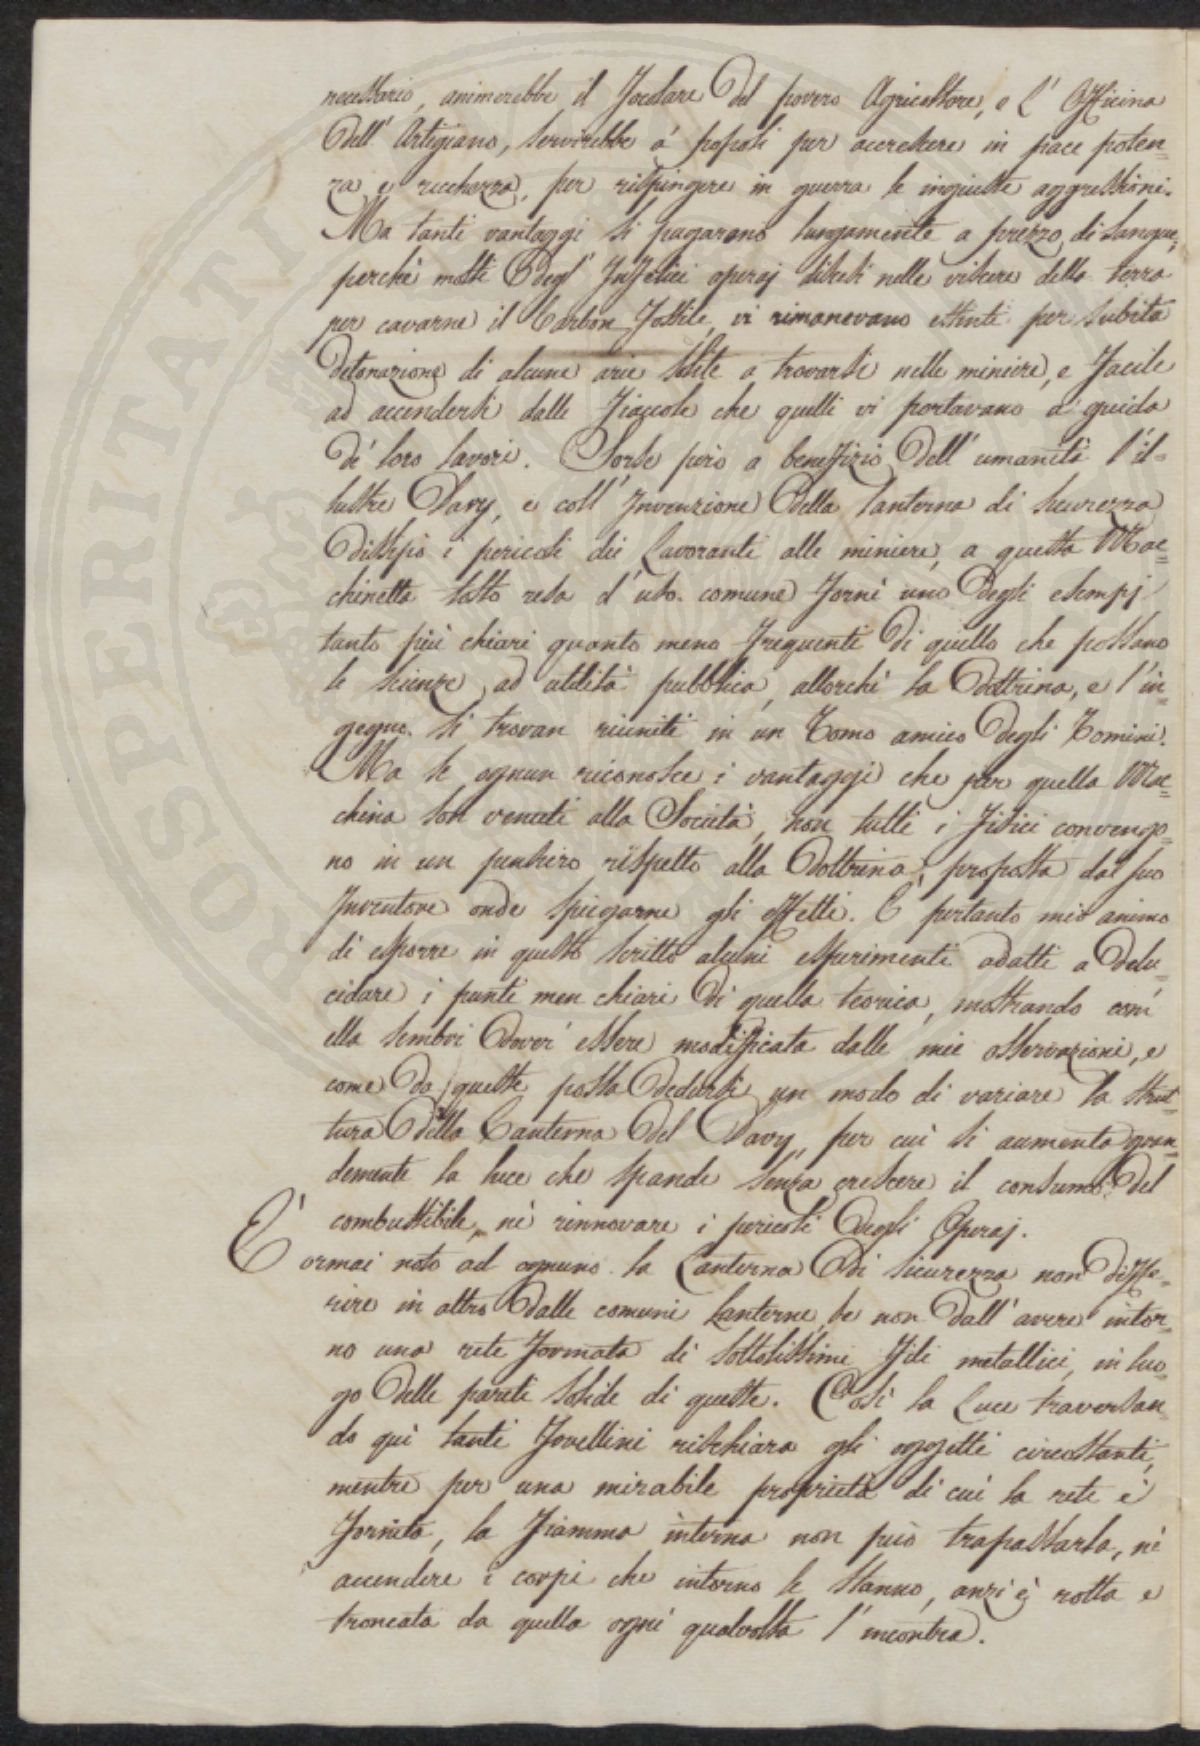 necessario, animerebbe il focolare del povero Agricoltore, e l'Officina
dell'Artigiano, servirebbe a' popoli per accrescere in pace poten-
za e ricchezza, per rispingere in guerra le ingiuste aggressioni.
Ma tanti vantaggi si pagarono lungamente a prezzo di sangue,
perchè molti degl'Infelici operaj discesi nelle viscere della terra
per cavarne il Carbon Fossile, vi rimanevano estinti per subita
detonazione di alcune arie solite a trovarsi nelle miniere, e facile
ad accendersi dalle fiaccole che quelli vi portavano a guida
de' loro lavori. Sorse però a benefizio dell'umanità l'il-
lustre Davy, e coll'Invenzione della lanterna di sicurezza
dissipò i pericoli dei Lavoranti alle miniere, a questa Mac=
chinetta tosto resa d'uso comune fornì uno degli esempj
tanto più chiari quanto meno frequenti di quello che possano
le scienze ad utilità pubblica, allorchè la dottrina, e l'in-
gegno si trovan riuniti in un Uomo amico degli Uomini.
Ma se ognun riconosce i vantaggi che per quella Mac=
china son venuti alla Società, non tutti i Fisici convengo-
no in un pensiero rispetto alla dottrina proposta dal suo
Inventore onde spiegarne gli effetti. È pertanto mio animo
di esporre in questo scritto alcuni esperimenti adatti a delu-
cidare i punti men chiari di quella teorica, mostrando com'
ella sembri dover essere modificata dalle mie osservazioni, e
come da queste possa dedursi un modo di variare la strut-
tura della Lanterna del Davy, per cui si aumenta gran-
demente la luce che spande senza crescere il consumo del
combustibile, nè rinnovare i pericoli degli Operaj.
È ormai noto ad ognuno la Lanterna di sicurezza non diffe-
rire in altro dalle comuni Lanterne, se non dall'avere intor-
no una rete formata di sottolissimi fili metallici, in luo-
go delle pareti solide di queste. Così la Luce traversan-
do quì tanti forellini rischiara gli oggetti circostanti,
mentre per una mirabile proprietà di cui la rete è
fornita, la fiamma interna non può trapassarla, nè
accendere i corpi che intorno le stanno, anzi è rotta e
troncata da quella ogni qualvolta l'incontra.